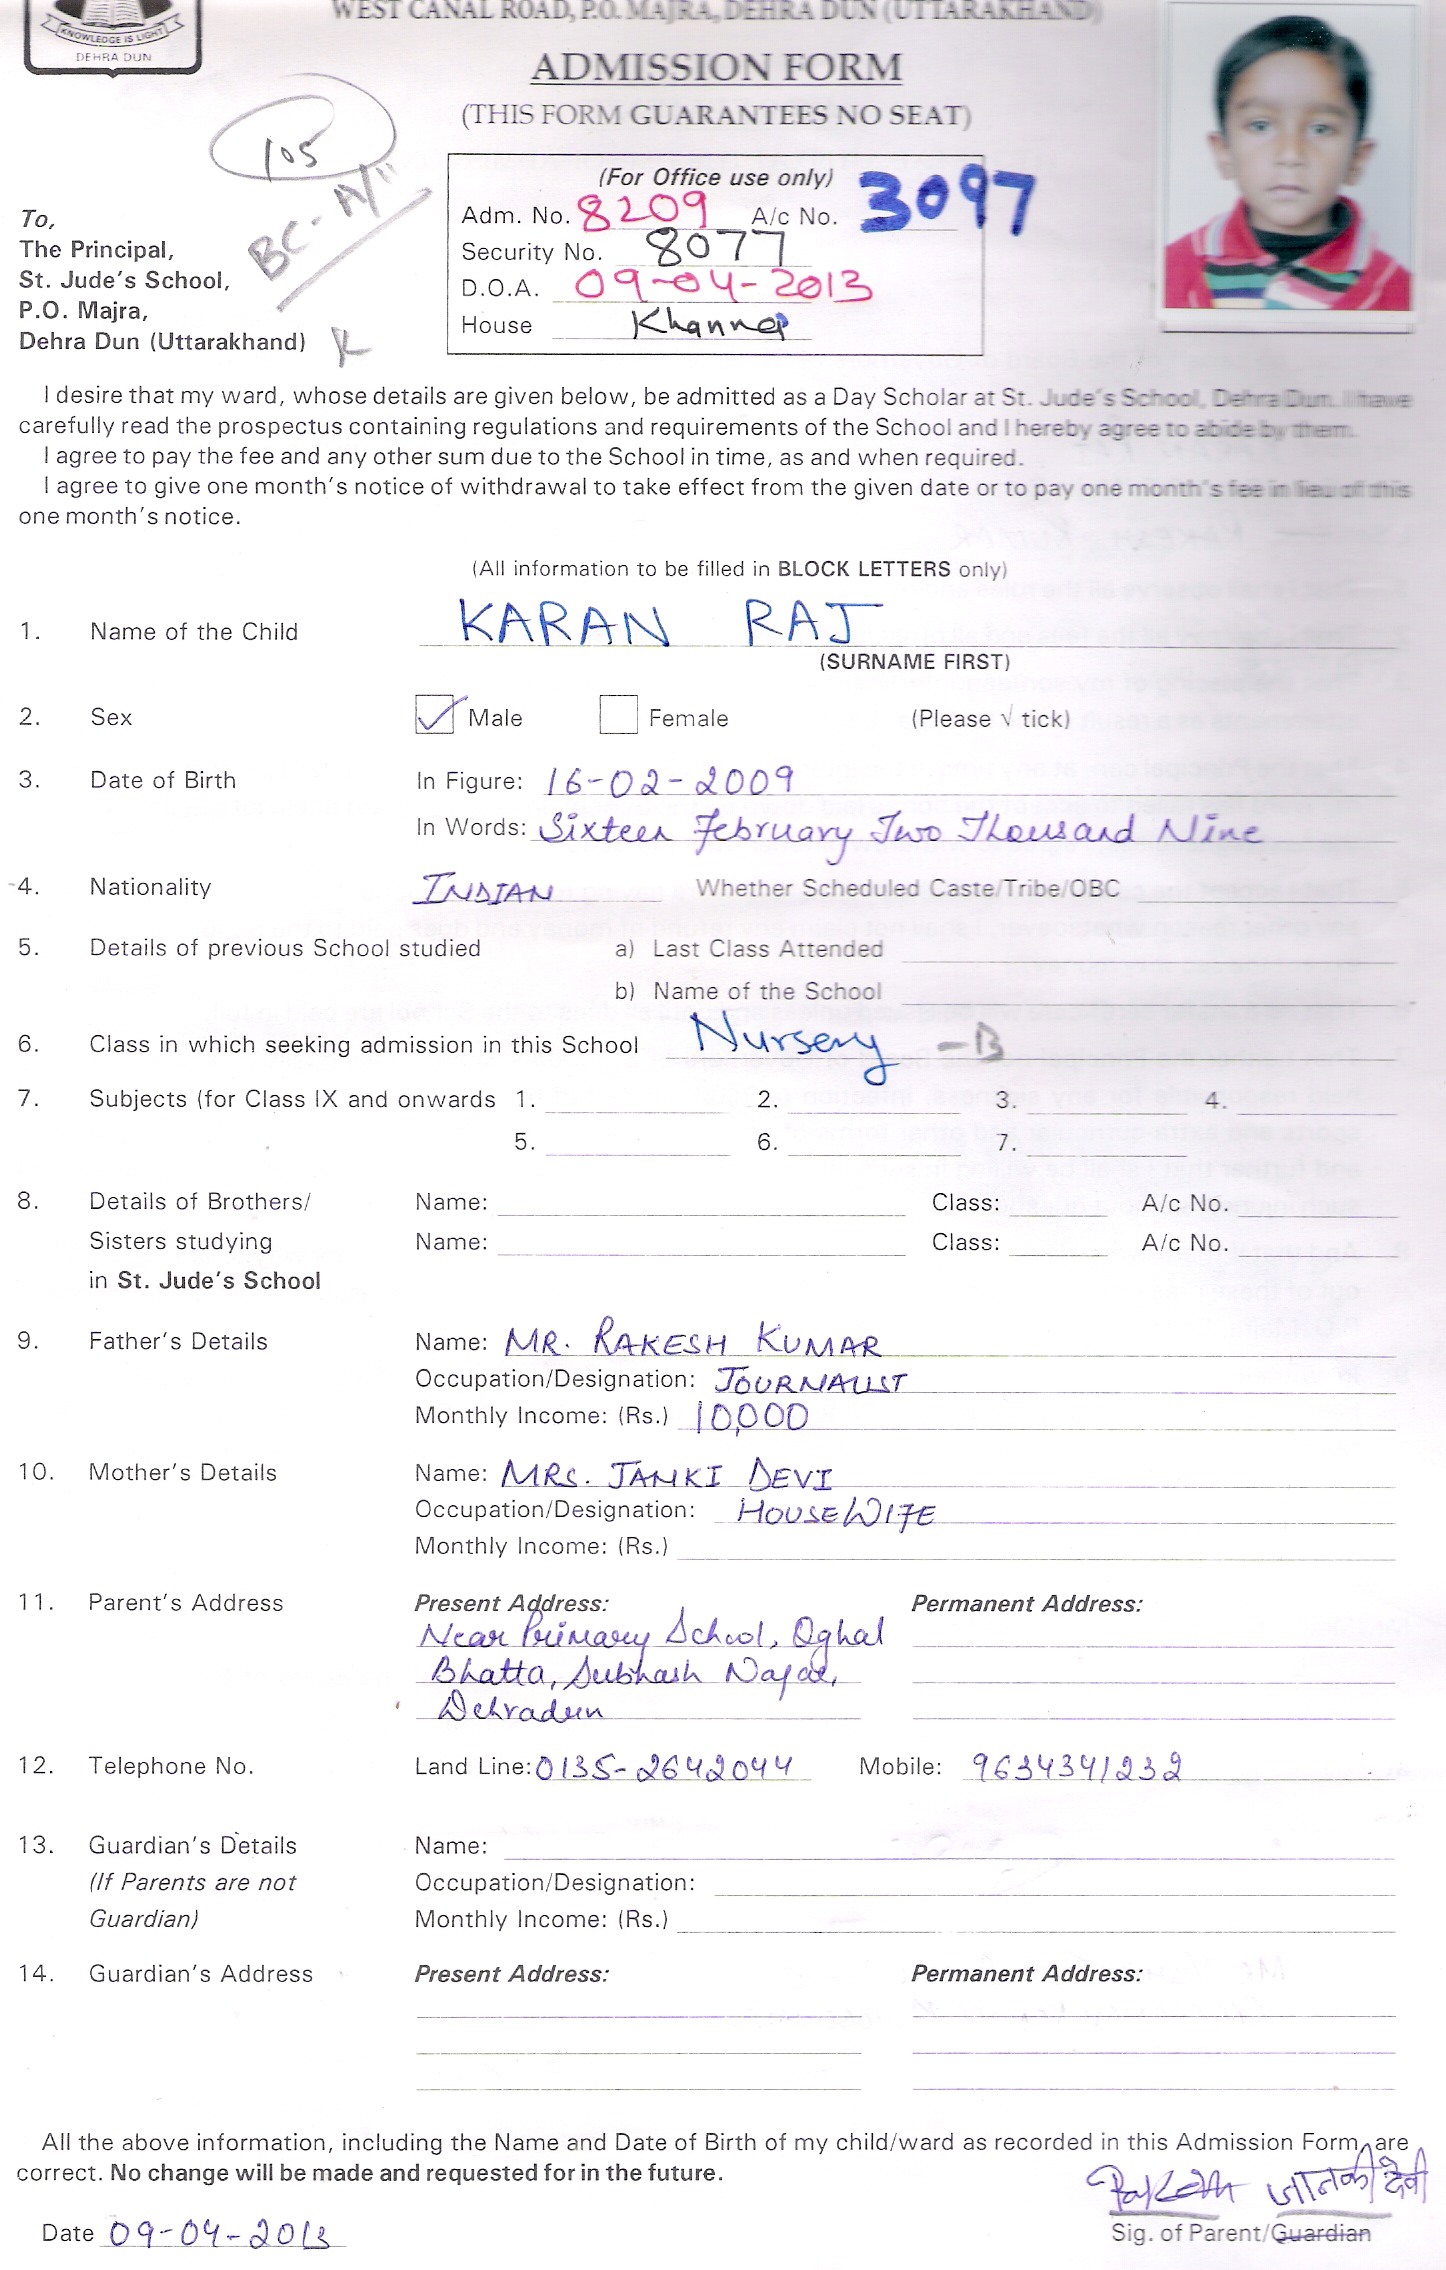 WEST CANAL ROAD, P.O. MAJRA, DEHRA DUN (UTTARAKHAND)
KNOWLEDGE IS LIGHT
DEHRA DUN
ADMISSION FORM
(THIS FORM GUARANTEES NO SEAT)
105
BC-A/"
(For Office use only)
Adm. No. 8209 A/c No. 3097
Security No. 8077
D.O.A. 09-04-2013
House Khanna
To,
The Principal,
St. Jude's School,
P.O. Majra,
Dehra Dun (Uttarakhand)
I desire that my ward, whose details are given below, be admitted as a Day Scholar at St. Jude's School, Dehra Dun. I have
carefully read the prospectus containing regulations and requirements of the School and I hereby agree to abide by them.
I agree to pay the fee and any other sum due to the School in time, as and when required.
I agree to give one month's notice of withdrawal to take effect from the given date or to pay one month's fee in lieu of this
one month's notice.
(All information to be filled in BLOCK LETTERS only)
1. Name of the Child KARAN RAJ
(SURNAME FIRST)
2. Sex ✓ Male Female (Please √ tick)
3. Date of Birth In Figure: 16-02-2009
In Words: Sixteen February Two Thousand Nine
4. Nationality INDIAN Whether Scheduled Caste/Tribe/OBC
5. Details of previous School studied a) Last Class Attended
b) Name of the School
6. Class in which seeking admission in this School Nursery -B
7. Subjects (for Class IX and onwards 1. 2. 3. 4.
5. 6. 7.
8. Details of Brothers/ Name: Class: A/c No.
Sisters studying Name: Class: A/c No.
in St. Jude's School
9. Father's Details Name: MR. RAKESH KUMAR
Occupation/Designation: JOURNALIST
Monthly Income: (Rs.) 10,000
10. Mother's Details Name: MRS. JANKI DEVI
Occupation/Designation: HOUSEWIFE
Monthly Income: (Rs.)
11. Parent's Address Present Address: Permanent Address:
Near Primary School, Oghal
Bhatta, Subhash Nagar,
Dehradun
12. Telephone No. Land Line: 0135-2642044 Mobile: 9634341232
13. Guardian's Details Name:
(If Parents are not Occupation/Designation:
Guardian) Monthly Income: (Rs.)
14. Guardian's Address Present Address: Permanent Address:
All the above information, including the Name and Date of Birth of my child/ward as recorded in this Admission Form, are
correct. No change will be made and requested for in the future.
Rakesh जानकी देवी
Date 09-04-2013 Sig. of Parent/Guardian